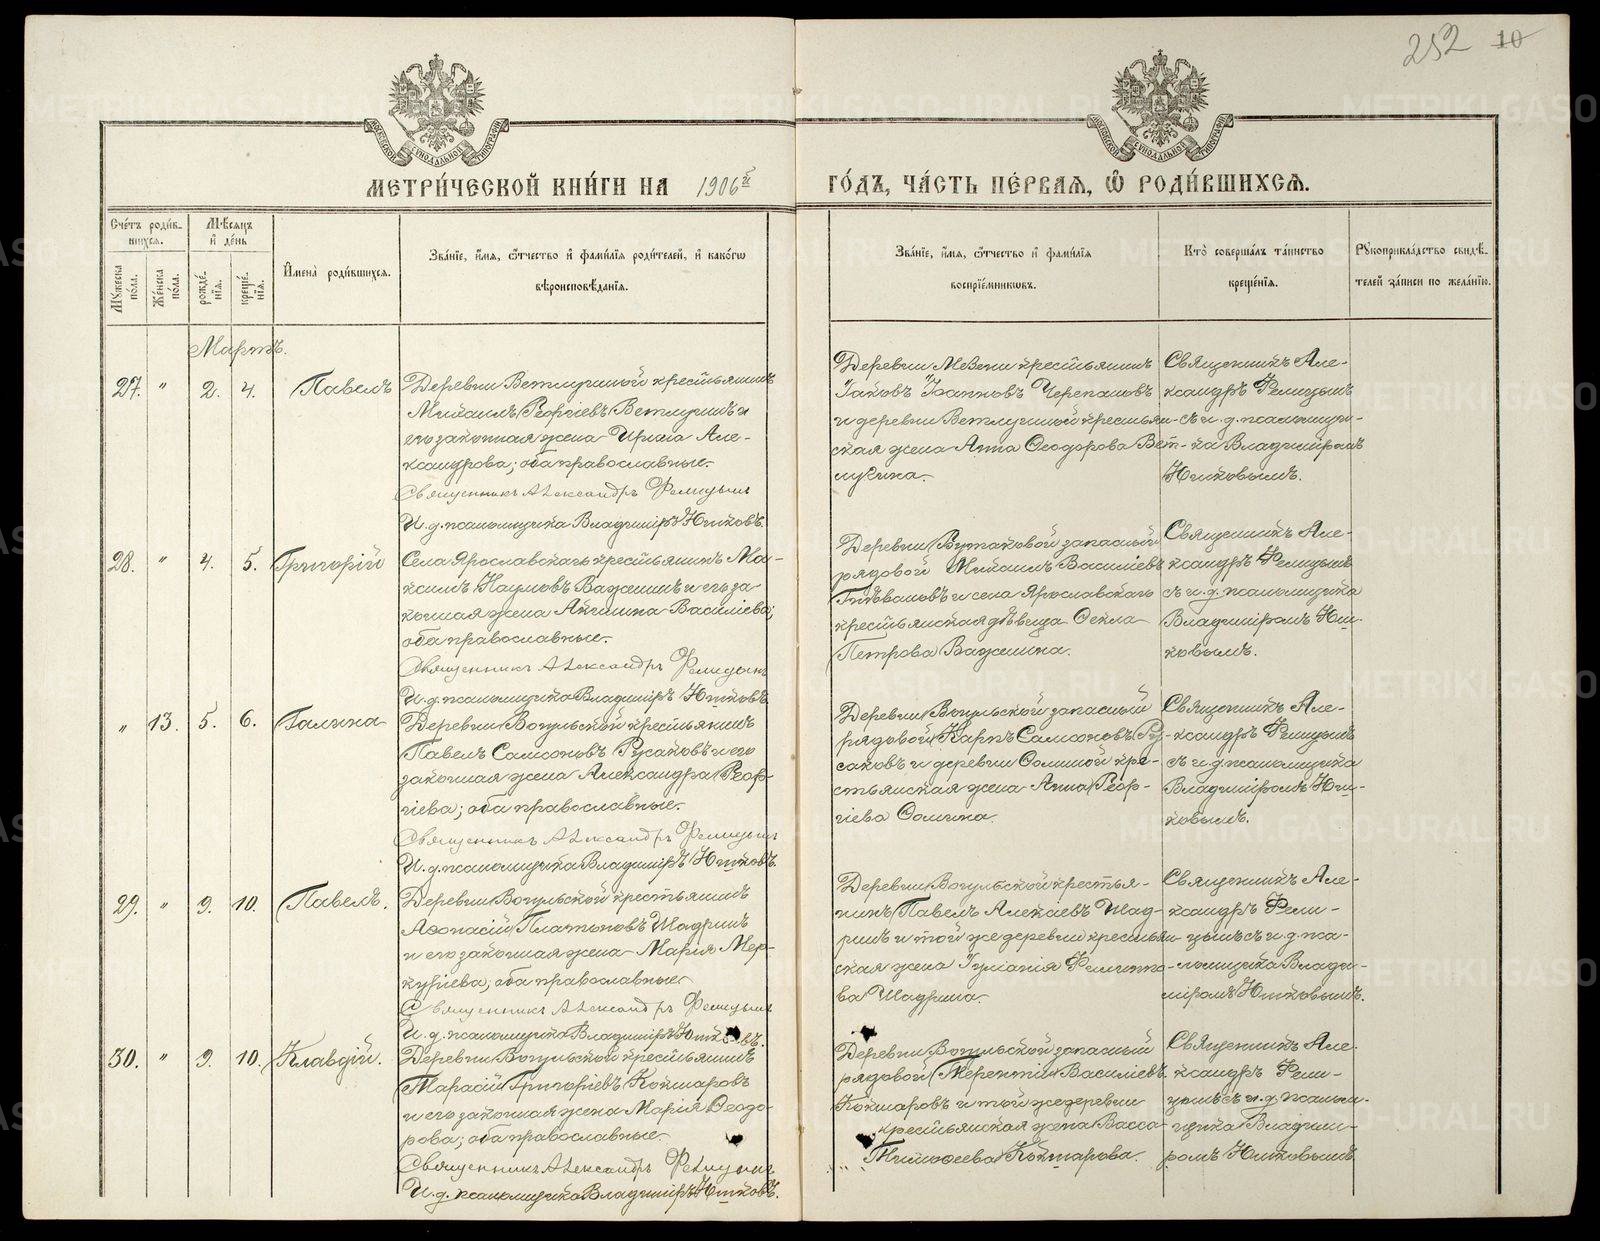 252 10
МОСКОВСКОЙ СѴНОДАЛЬНОЙ ТИПОГРАФІИ
МОСКОВСКОЙ СѴНОДАЛЬНОЙ ТИПОГРАФІИ
МЕТРИ́ЧЕСКОЙ КНИ́ГИ НА 1906й ГО́ДЪ, ЧА́СТЬ ПЕ́РВАЯ, Ѽ РОДИ́ВШИХСЯ.
Сче́тъ роди́вшихся.
Му́жеска по́ла.
Же́нска по́ла.
Мѣ́сяцъ и҆ де́нь
рожде́нїя.
креще́нїя.
И҆мена̀ роди́вшихся.
Зва́нїе, и҆́мя, ѻ҆́тчество и҆ фами́лїя роди́телей, и҆ како́гѡ вѣроисповѣ́данїя.
Зва́нїе, и҆́мя, ѻ҆́тчество и҆ фами́лїя воспрїе́мникѡвъ.
Кто̀ соверша́лъ та́инство креще́нїя.
Рꙋкоприкла́дство свидѣ́телей за́писи по жела́нїю.
Мартъ.
27. " 2. 4. Павелъ
Деревни Ветлугиной крестьянинъ
Михаилъ Георгіевъ Ветлугинъ и
его законная жена Ирина Але-
ксандрова; оба православные.
Священникъ Александръ Фелицынъ
И. д. псаломщика Владиміръ
Деревни крестьянинъ
Іаковъ Іоанновъ Черепановъ
и деревни Ветлугиной крестьян-
ская жена Анна Ѳеодорова Вет-
лугина.
Священникъ Але-
ксандръ Фелицынъ
съ и. д. псаломщи-
ка Владиміромъ
28. " 4. 5. Григорій
Села Ярославскаго крестьянинъ Ма-
ксимъ Наумовъ Важенинъ и его за-
конная жена Василіева;
оба православные.
Священникъ Александръ Фелицынъ
И. д. псаломщика Владиміръ
Деревни запасный
рядовой Михаилъ Васильевъ
и села Ярославскаго
крестьянская дѣвица Ѳекла
Петрова Важенина.
Священникъ Але-
ксандръ Фелицынъ
съ и. д. псаломщика
Владиміромъ
" 13. 5. 6. Галина
Деревни Вогульской крестьянинъ
Павелъ Самсоновъ Русаковъ и его
законная жена Александра Геор-
гіева; оба православные.
Священникъ Александръ Фелицынъ
И. д. псаломщика Владиміръ
Деревни Вогульской запасный
рядовой Карпъ Самсоновъ Ру-
саковъ и деревни Соминой кре-
стьянская жена Анна Геор-
гіева Сомина.
Священникъ Але-
ксандръ Фелицынъ
съ и. д. псаломщика
Владиміромъ
29. " 9. 10. Павелъ.
Деревни Вогульской крестьянинъ
Аѳонасій Платоновъ Шадринъ
и его законная жена Марія Мер-
куріева; оба православные.
Священникъ Александръ Фелицынъ
И. д. псаломщика Владиміръ
Деревни Вогульской крестья-
нинъ Павелъ Шад-
ринъ и той же деревни крестьян-
ская жена Іуліанія Филиппо-
ва Шадрина.
Священникъ Але-
ксандръ Фели-
цынъ съ и. д. пса-
ломщика Влади-
міромъ
30. " 9. 10. Клавдій.
Деревни Вогульской крестьянинъ
Тарасій Григоріевъ Кокшаровъ
и его законная жена Марія Ѳеодо-
рова; оба православные.
Священникъ Александръ Фелицынъ
И. д. псаломщика Владиміръ
Деревни Вогульской запасный
рядовой Терентій Васильевъ
Кокшаровъ и той же деревни
крестьянская жена Васса
Тимоѳеева Кокшарова.
Священникъ Але-
ксандръ Фели-
цынъ съ и. д. псалом-
щика Влади-
міромъ
METRIKI.GASO-URAL.RU